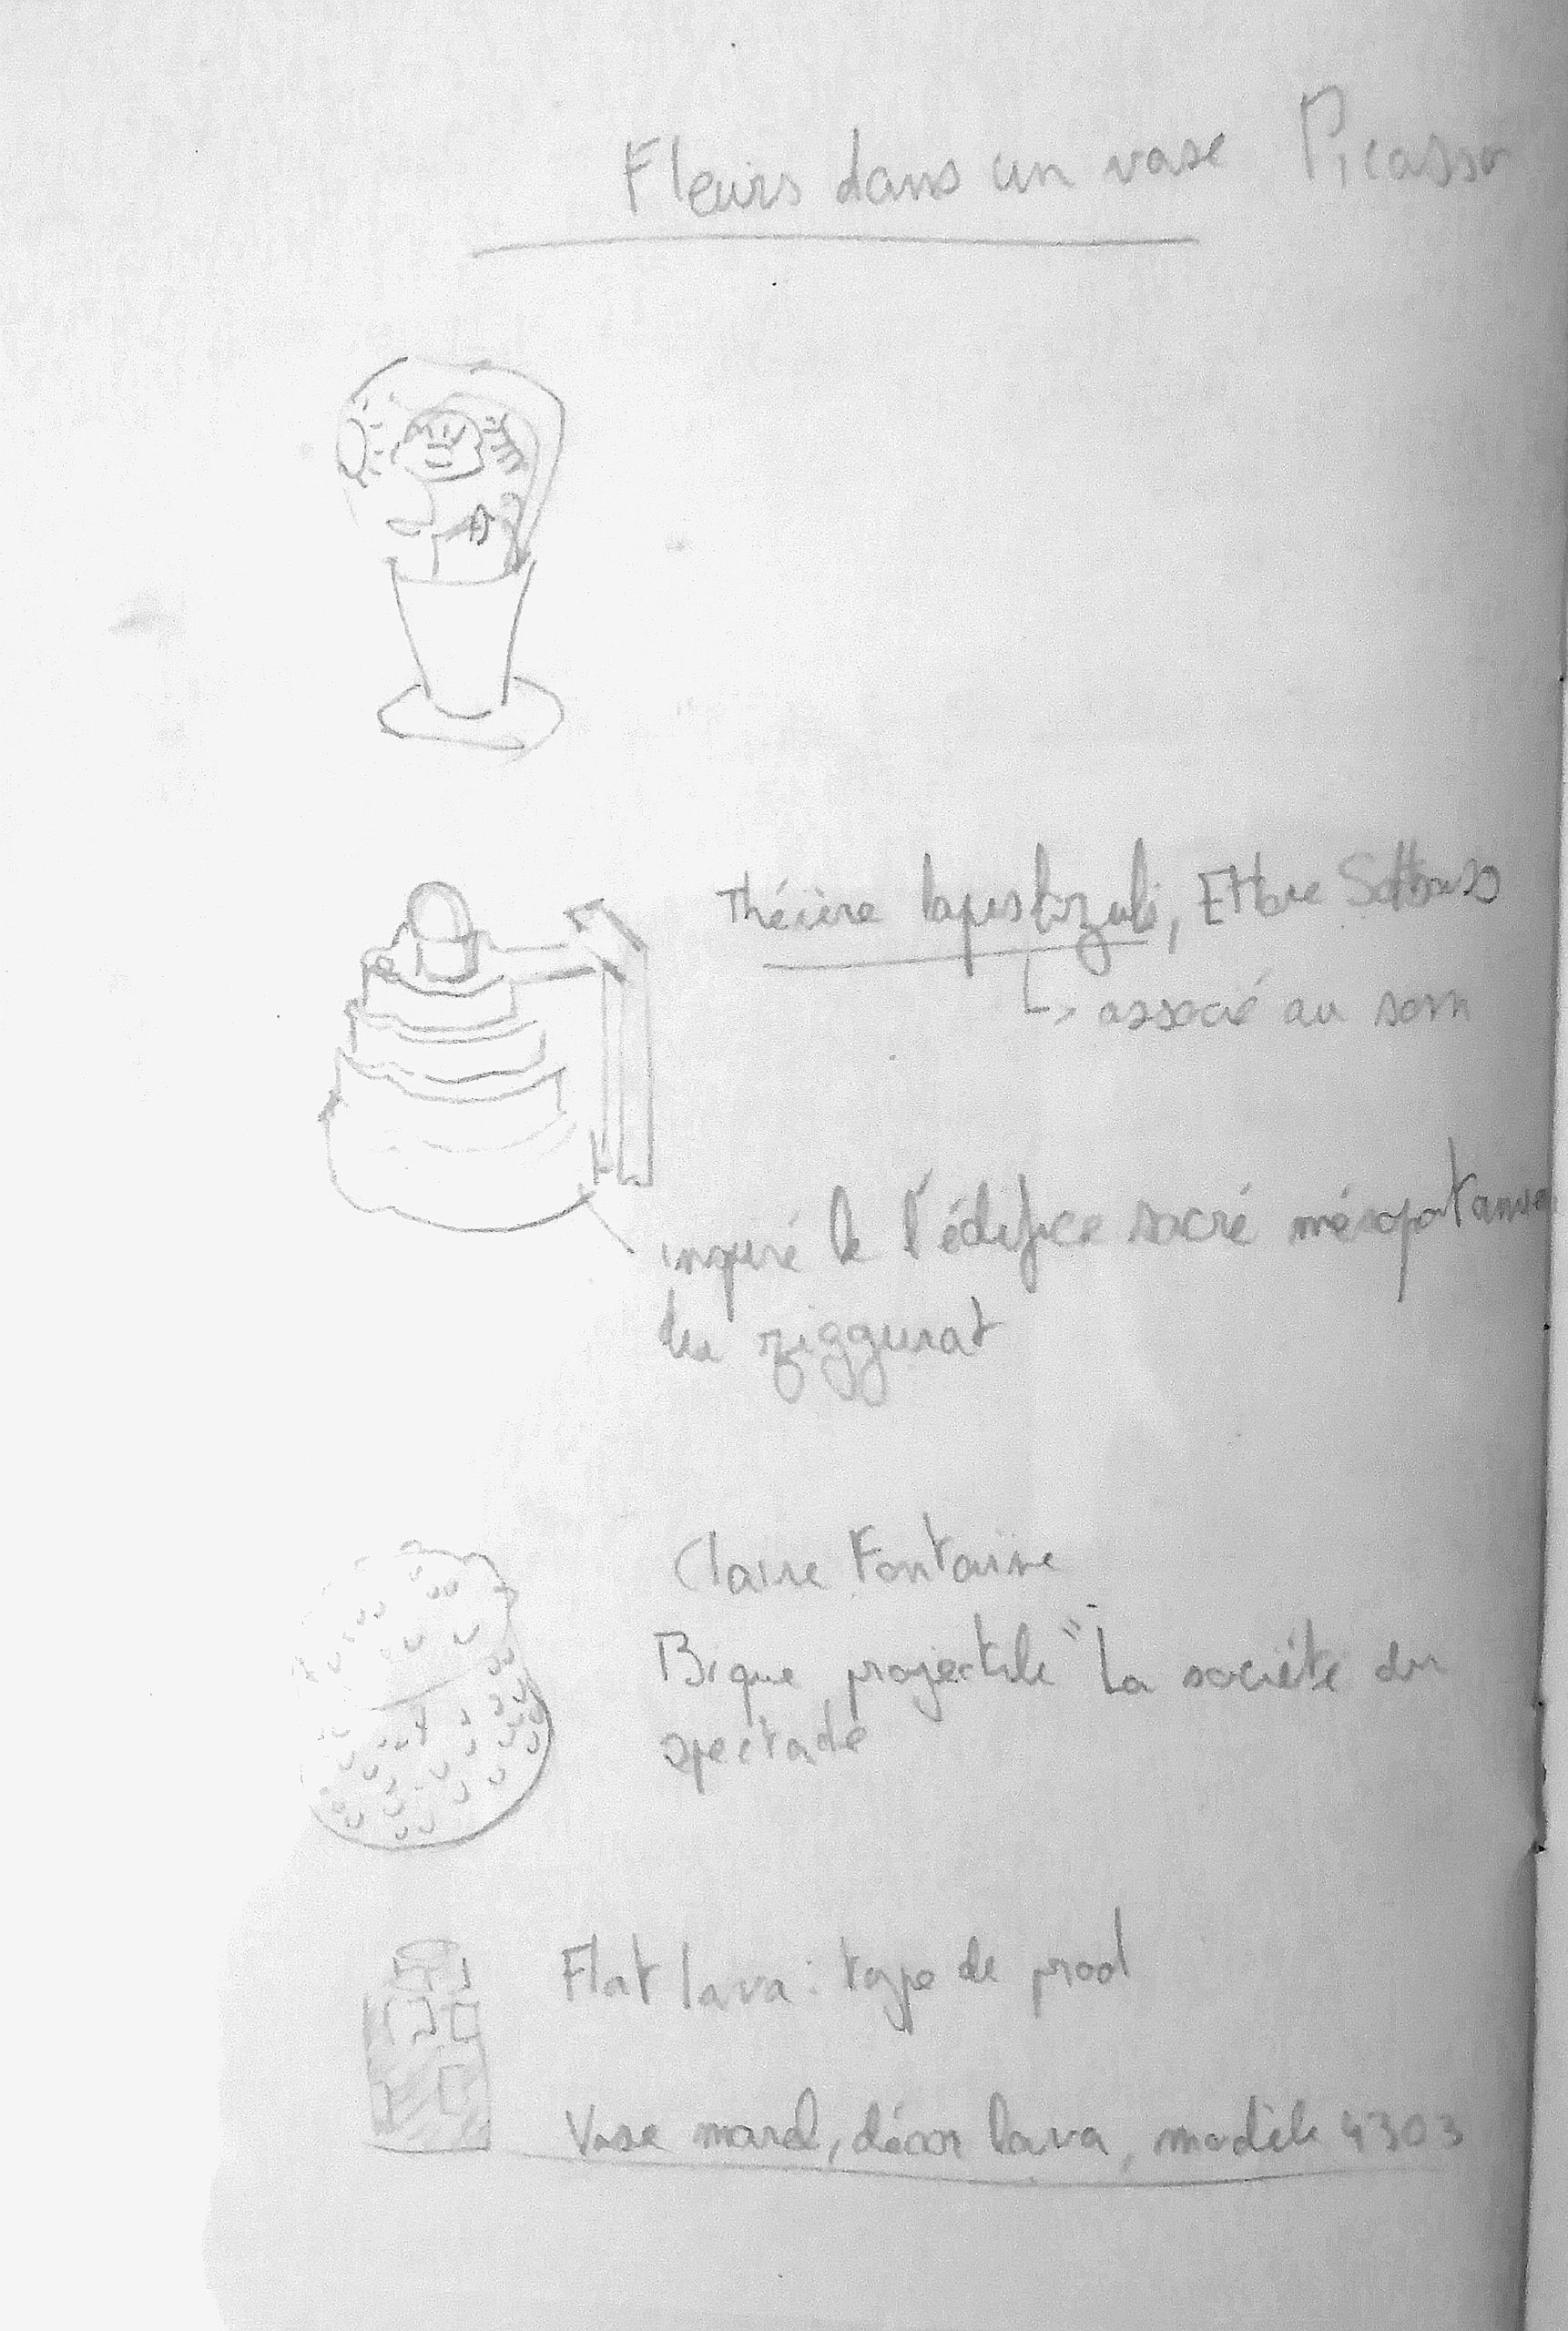 Fleurs dans un vase Picasso
Théière lapislazuli, Ettore Sottsass
↳ associé au som
inspiré de l'édifice sacré mésopotamien
du ziggurat
Claire Fontaine
Brique projectile "La société du
spectacle
Flat lava : type de prod
Vase marel, décor lava, modèle 4303